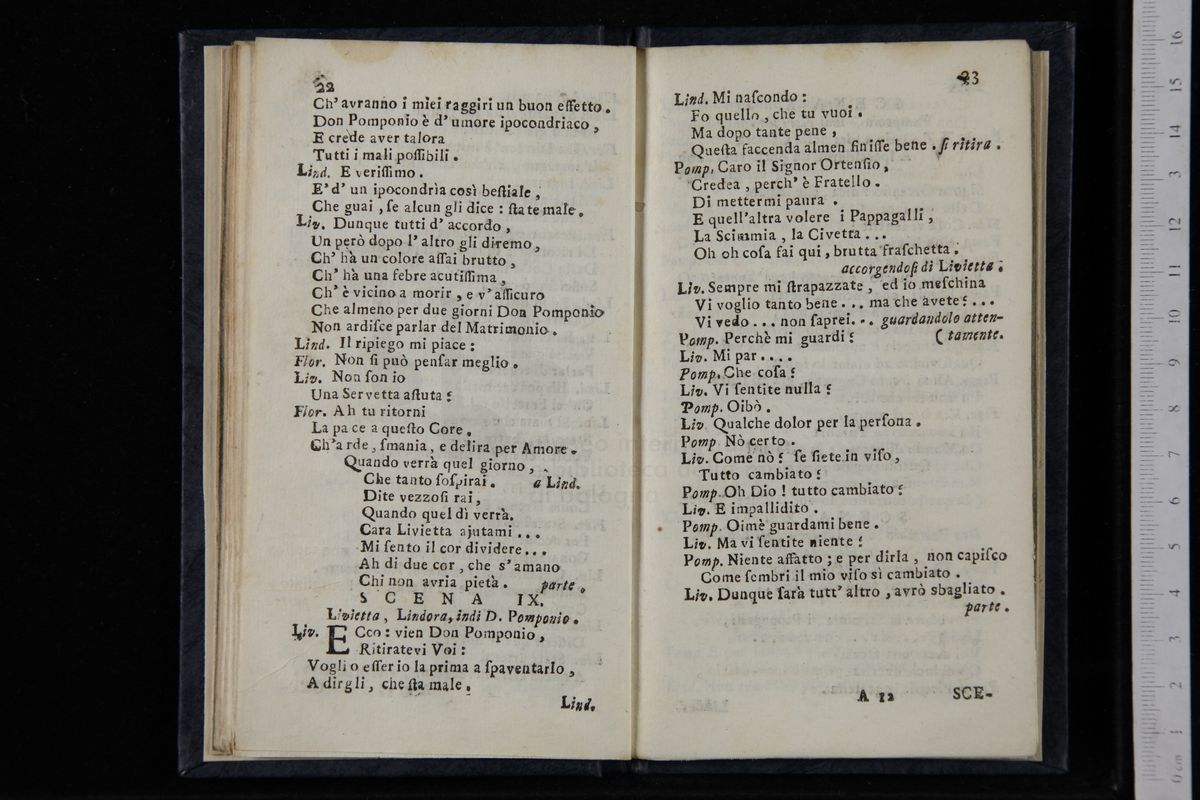 22
Ch' avranno i miei raggiri un buon effetto.
Don Pomponio è d' umore ipocondriaco,
E crede aver talora
Tutti i mali poſſibili.
Lind. E veriſſimo.
E' d' un ipocondrìa così beſtiale,
Che guai, ſe alcun gli dice: ſta te male.
Liv. Dunque tutti d' accordo,
Un però dopo l' altro gli diremo,
Ch' hà un colore aſſai brutto,
Ch' hà una febre acutiſſima,
Ch' è vicino a morir, e v' aſſicuro
Che almeno per due giorni Don Pomponio
Non ardiſce parlar del Matrimonio.
Lind. Il ripiego mi piace:
Flor. Non ſi può penſar meglio.
Liv. Non ſon io
Una Servetta aſtuta?
Flor. Ah tu ritorni
La pace a queſto Core,
Ch'arde, ſmania, e delira per Amore.
Quando verrà quel giorno,
Che tanto ſoſpirai. a Lind.
Dite vezzoſi rai,
Quando quel dì verrà.
Cara Livietta ajutami...
Mi ſento il cor dividere...
Ah di due cor, che s' amano
Chi non avria pietà. parte.
SCENA IX.
Livietta, Lindora, indi D. Pomponio.
Liv. ECco: vien Don Pomponio,
Ritiratevi Voi:
Voglio eſſer io la prima a ſpaventarlo,
A dirgli, che ſta male.
Lind.
23
Lind. Mi naſcondo:
Fo quello, che tu vuoi.
Ma dopo tante pene,
Queſta faccenda almen finiſſe bene. ſi ritira.
Pomp. Caro il Signor Ortenſio,
Credea, perch' è Fratello.
Di mettermi paura.
E quell'altra volere i Pappagalli,
La Scimmia, la Civetta...
Oh oh coſa fai qui, brutta fraſchetta.
accorgendoſi di Livietta.
Liv. Sempre mi ſtrapazzate, ed io meſchina
Vi voglio tanto bene... ma che avete?...
Vi vedo... non ſaprei... guardandolo atten-
Pomp. Perchè mi guardi? (tamente.
Liv. Mi par....
Pomp. Che coſa?
Liv. Vi ſentite nulla?
Pomp. Oibò.
Liv Qualche dolor per la perſona.
Pomp Nò certo.
Liv. Come nò? ſe ſiete in viſo,
Tutto cambiato?
Pomp. Oh Dio! tutto cambiato?
Liv. E impallidito.
Pomp. Oimè guardami bene.
Liv. Ma vi ſentite niente?
Pomp. Niente affatto; e per dirla, non capiſco
Come ſembri il mio viſo sì cambiato.
Liv. Dunque ſarà tutt' altro, avrò sbagliato.
parte.
A 12 SCE-
0 cm 1 2 3 4 5 6 7 8 9 10 11 12 13 14 15 16